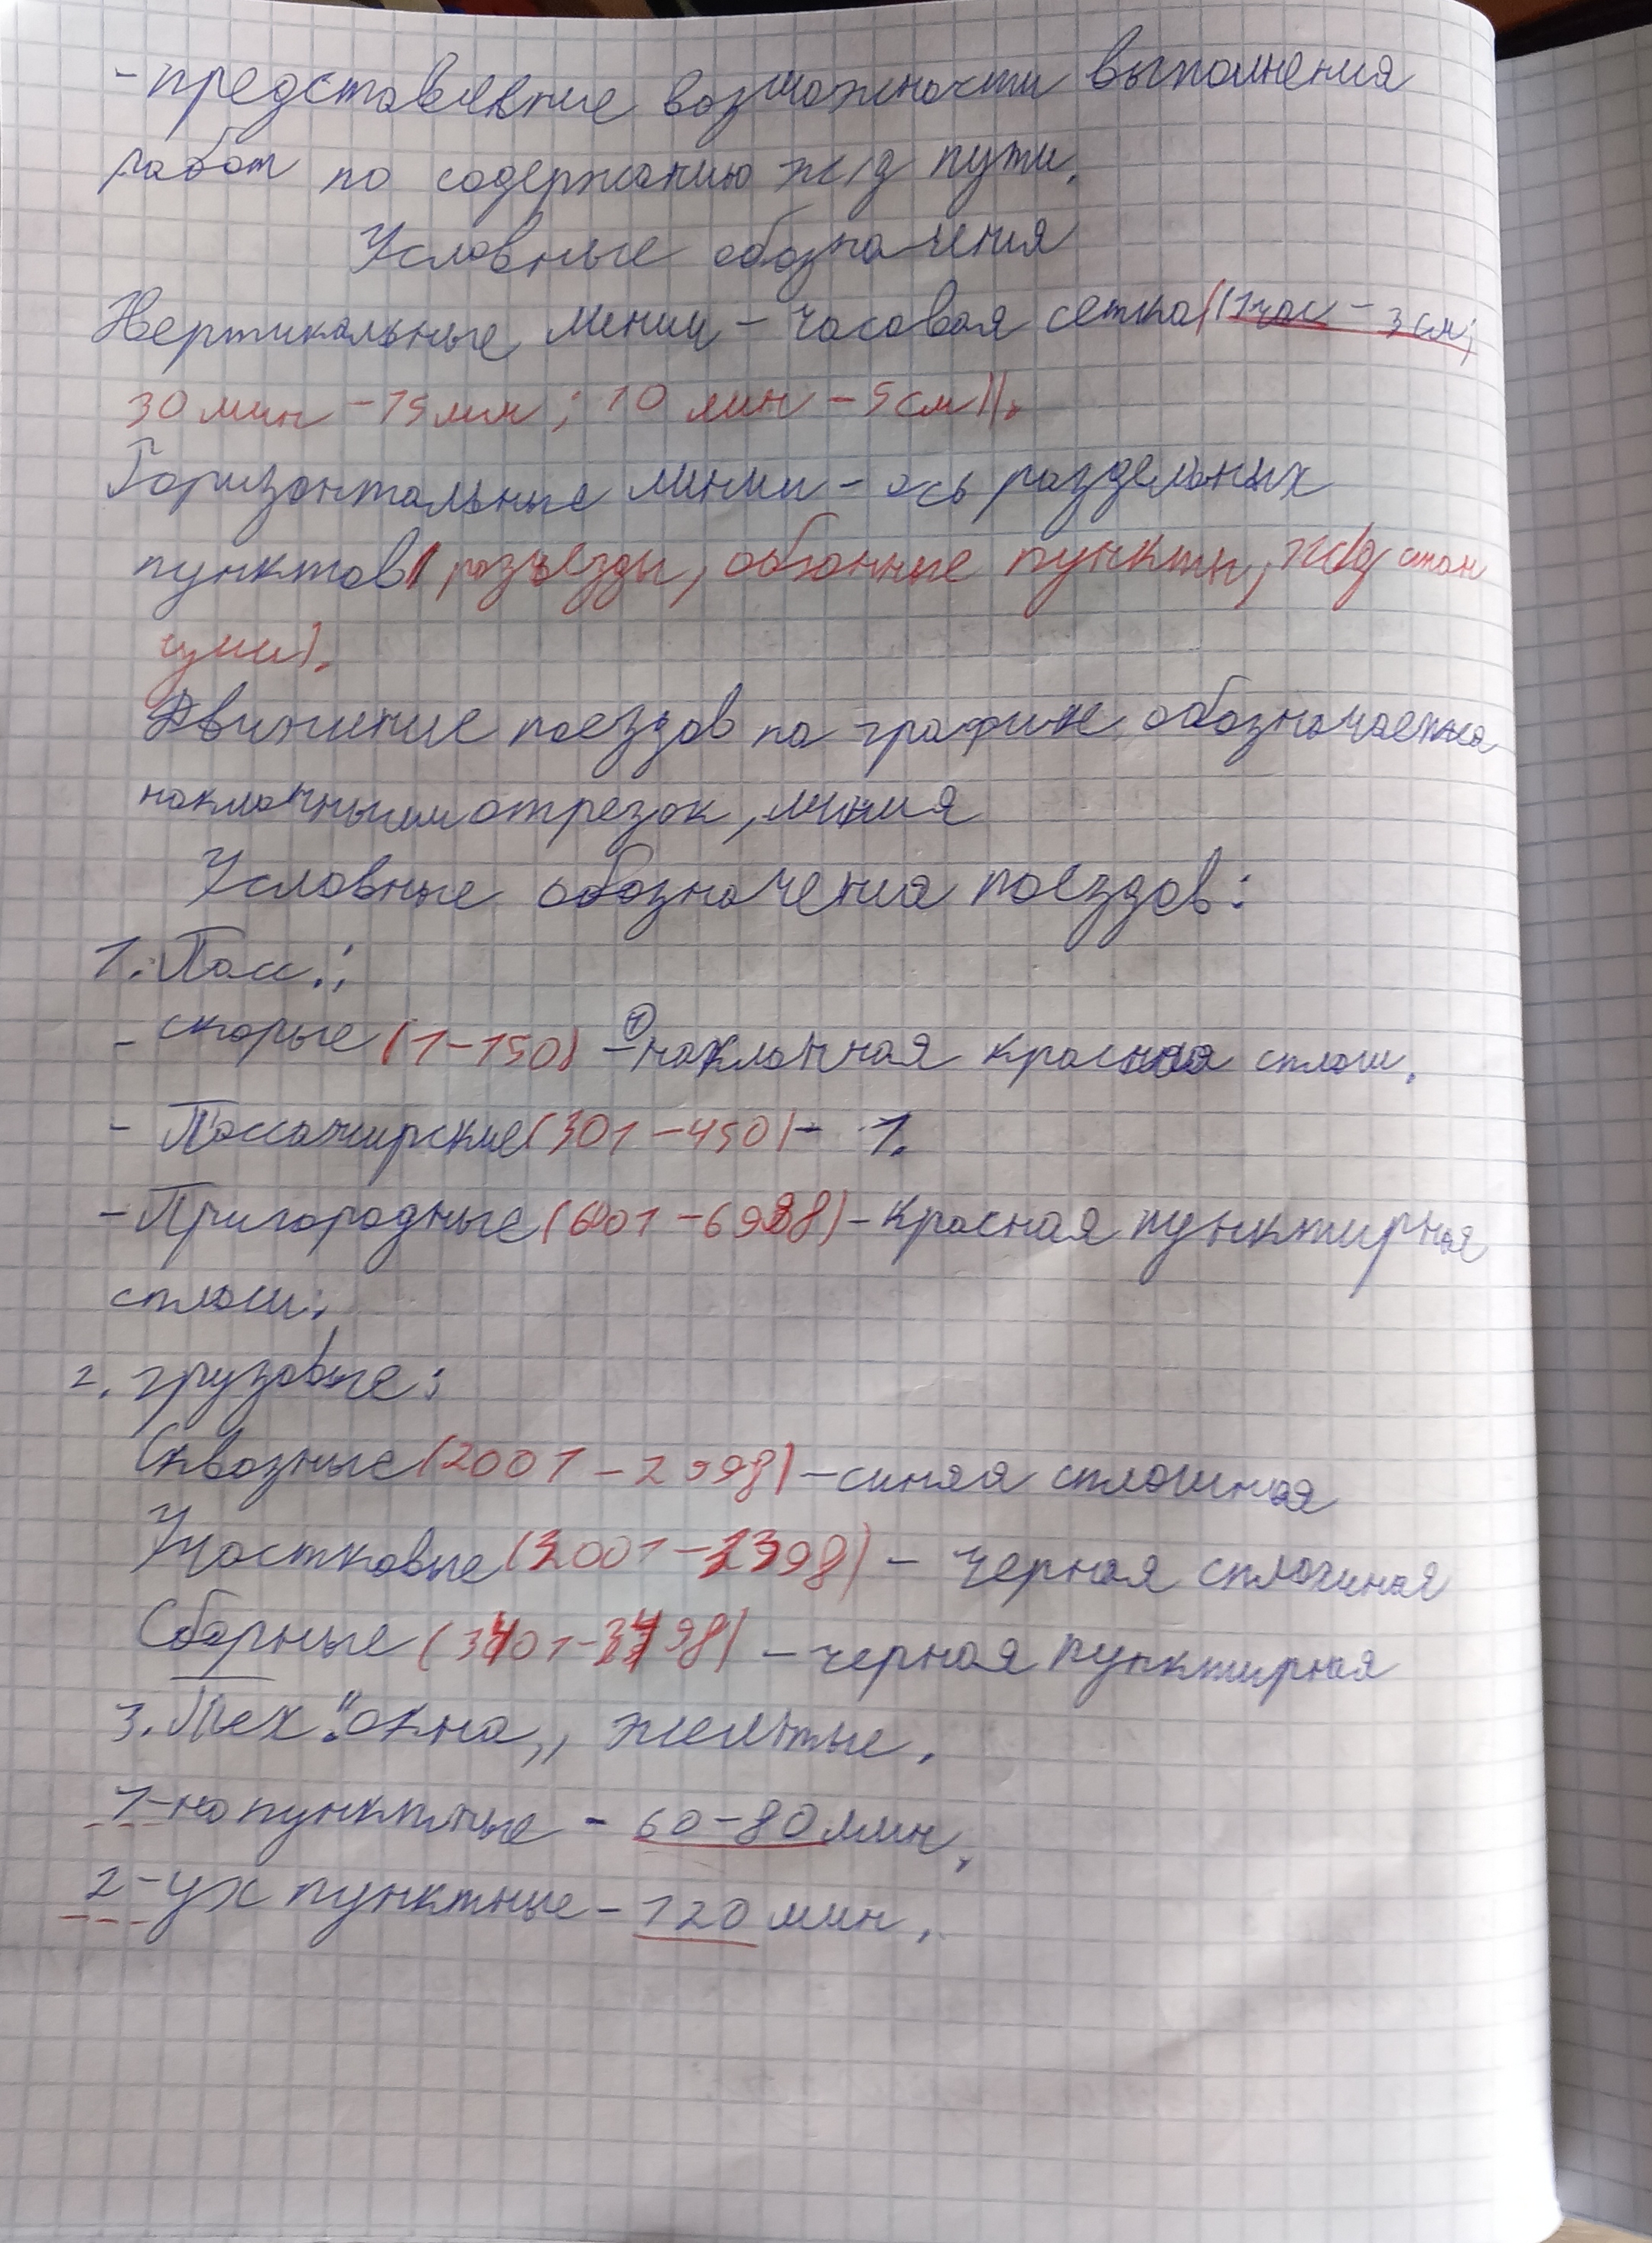 - представление возможности выполнения
работ по содержанию ж/д пути.
Условные обозначения
Вертикальные линии - часовая сетка ((1 час - 3 см;
30 мин - 15 мм; 10 мин - 5 см)).
Горизонтальные линии - ось раздельных
пунктов (разъезды, обгонные пункты, ж/д стан
ции).
Движение поездов на графике обозначается
наклонными отрезок, линия
Условные обозначения поездов:
1. Пасс.:
- скорые (1-150) - ① наклонная красная сплош.
- Пассажирские (301-450) - 1.
- Пригородные (6001-6998) - красная пунктирная
сплош.
2. грузовые:
Сквозные (2001-2998) - синяя сплошная
Участковые (3001-3398) - черная сплошная
Сборные (3401-3498) - черная пунктирная
3. Тех. "окна" желтые.
1-но пунктные - 60-80 мин.
2-ух пунктные - 120 мин.